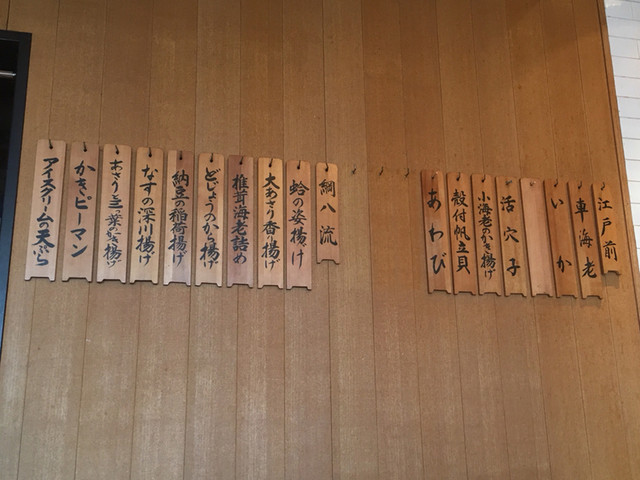 江戸前
車海老
いか
活穴子
小海老のかき揚げ
殻付帆立貝
あわび
綱八流
蛤の姿揚げ
大あさり香り揚げ
椎茸海老詰め
どじょうのから揚げ
納豆の稲荷揚げ
なすの深川揚げ
あさりと三つ葉のかき揚げ
かきピーマン
アイスクリームの天ぷら